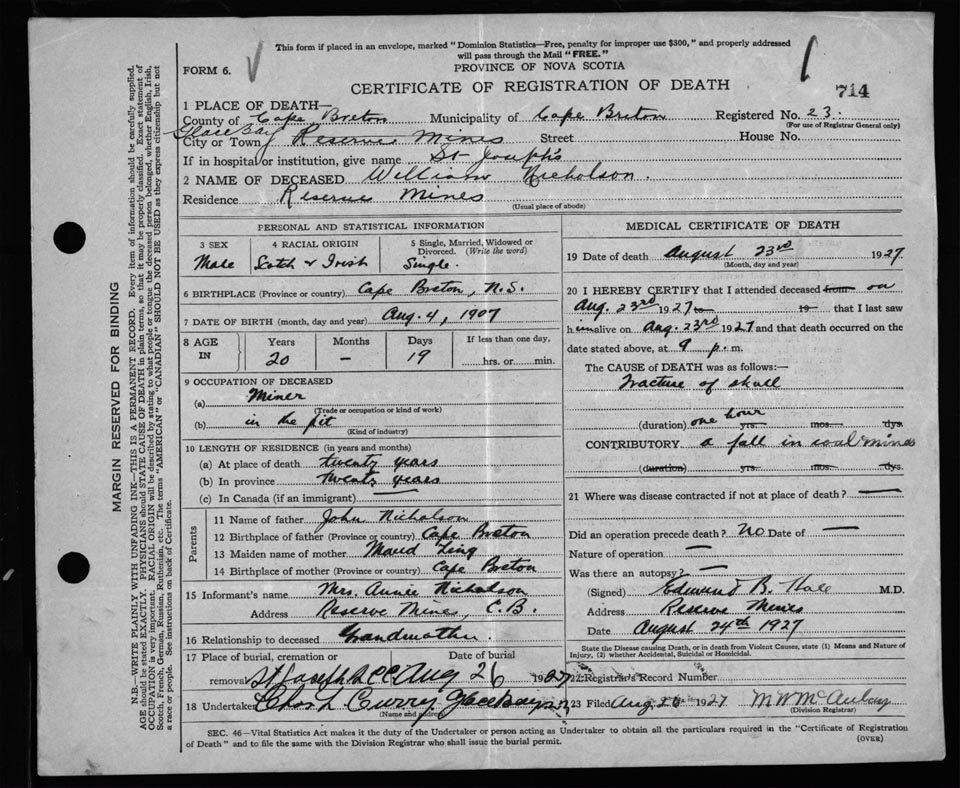 This form if placed in an envelope, marked "Dominion Statistics—Free, penalty for improper use $300," and properly addressed
will pass through the Mail "FREE."
FORM 6.
PROVINCE OF NOVA SCOTIA
CERTIFICATE OF REGISTRATION OF DEATH
714
1 PLACE OF DEATH—
County of Cape Breton Municipality of Cape Breton Registered No. 23.
(For use of Registrar General only)
Glace Bay
City or Town Reserve Mines Street House No.
If in hospital or institution, give name St Joseph's
2 NAME OF DECEASED William Nicholson.
Residence Reserve Mines
(Usual place of abode)
PERSONAL AND STATISTICAL INFORMATION
3 SEX 4 RACIAL ORIGIN 5 Single, Married, Widowed or Divorced. (Write the word)
Male Scotch & Irish Single.
6 BIRTHPLACE (Province or country) Cape Breton, N.S.
7 DATE OF BIRTH (month, day and year) Aug. 4, 1907
8 AGE IN Years Months Days If less than one day,
20 — 19 hrs. or min.
9 OCCUPATION OF DECEASED
(a) Miner
(Trade or occupation or kind of work)
(b) in the pit
(Kind of industry)
10 LENGTH OF RESIDENCE (in years and months)
(a) At place of death twenty years
(b) In province twenty years
(c) In Canada (if an immigrant) —
Parents
11 Name of father John Nicholson
12 Birthplace of father (Province or country) Cape Breton
13 Maiden name of mother Maud Ling
14 Birthplace of mother (Province or country) Cape Breton
15 Informant's name Mrs. Annie Nicholson
Address Reserve Mines, C.B.
16 Relationship to deceased Grandmother.
17 Place of burial, cremation or Date of burial
removal St Joseph's CC Aug 26 1927
18 Undertaker Chas L Curry Glace Bay
(Name and address)
MEDICAL CERTIFICATE OF DEATH
19 Date of death August 23rd 1927
(Month, day and year)
20 I HEREBY CERTIFY that I attended deceased from on
Aug. 23rd 1927 to 19 that I last saw
him alive on Aug. 23rd 1927 and that death occurred on the
date stated above, at 9 p. m.
The CAUSE of DEATH was as follows:—
Fracture of skull
one hour
(duration) yrs. mos. dys.
CONTRIBUTORY a fall in coal mines
(duration) yrs. mos. dys.
21 Where was disease contracted if not at place of death? —
Did an operation precede death? No Date of —
Nature of operation —
Was there an autopsy? —
(Signed) Edmund B. Hall M.D.
Address Reserve Mines
Date August 24th 1927
State the Disease causing Death, or in death from Violent Causes, state (1) Means and Nature of
Injury, (2) whether Accidental, Suicidal or Homicidal.
22 Registrar's Record Number
23 Filed Aug 26 1927 M W McAulay
(Division Registrar)
SEC. 46—Vital Statistics Act makes it the duty of the Undertaker or person acting as Undertaker to obtain all the particulars required in the "Certificate of Registration
of Death" and to file the same with the Division Registrar who shall issue the burial permit.
(OVER)
MARGIN RESERVED FOR BINDING
N.B.—WRITE PLAINLY WITH UNFADING INK—THIS IS A PERMANENT RECORD. Every item of information should be carefully supplied.
AGE should be stated EXACTLY. PHYSICIANS should STATE CAUSE OF DEATH in plain terms, so that it may be properly classified. Exact statement of
OCCUPATION is very important. RACIAL ORIGIN will be described by stating to what people or tongue the deceased person belonged, whether English, Irish,
Scotch, French, German, Russian, Ruthenian, etc. The terms "AMERICAN" or "CANADIAN" SHOULD NOT BE USED as they express citizenship but not
a race or people. See instructions on back of Certificate.